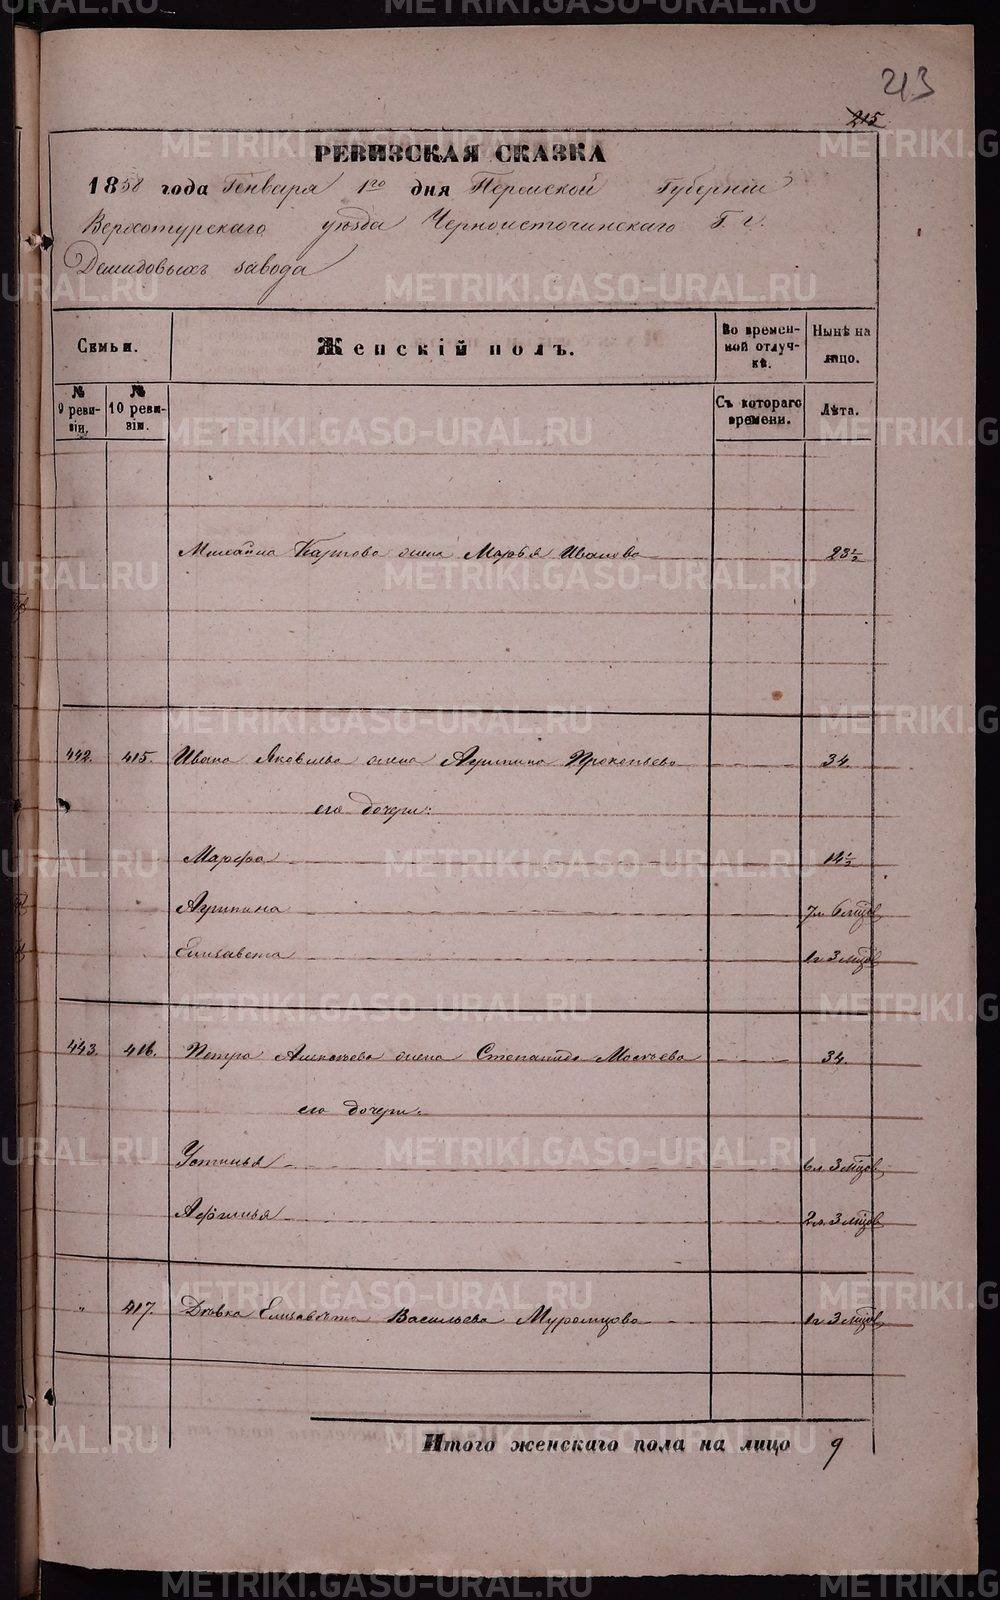 213
215
РЕВИЗСКАЯ СКАЗКА
1858 года Генваря 1го дня Пермской Губернии
Верхотурскаго уезда Черноисточинскаго Г. г.
Демидовыхъ завода
Семьи. Женскій полъ. Во временной отлучкѣ. Нынѣ на лицо.
№ 9 ревизіи. № 10 ревизіи. Съ котораго времени. Лѣта.
Михайла Карпова жена Марья Иванова 23 1/2
442. 415. Ивана Яковлева жена Агрипина Прокопьева 34.
его дочери:
Марфа 14 1/2
Агрипина 7л 6 мцов
Елизавета 1г 3 мцов
443. 416. Петра Алексеева жена Степанида Моисеева 34.
его дочери:
Устинья 6л 3 мцов
Афимья 2л. 3 мцов
" 417. Девка Елизавета Васильева Муромцова 1г 3 мцов
Итого женскаго пола на лицо 9
METRIKI.GASO-URAL.RU